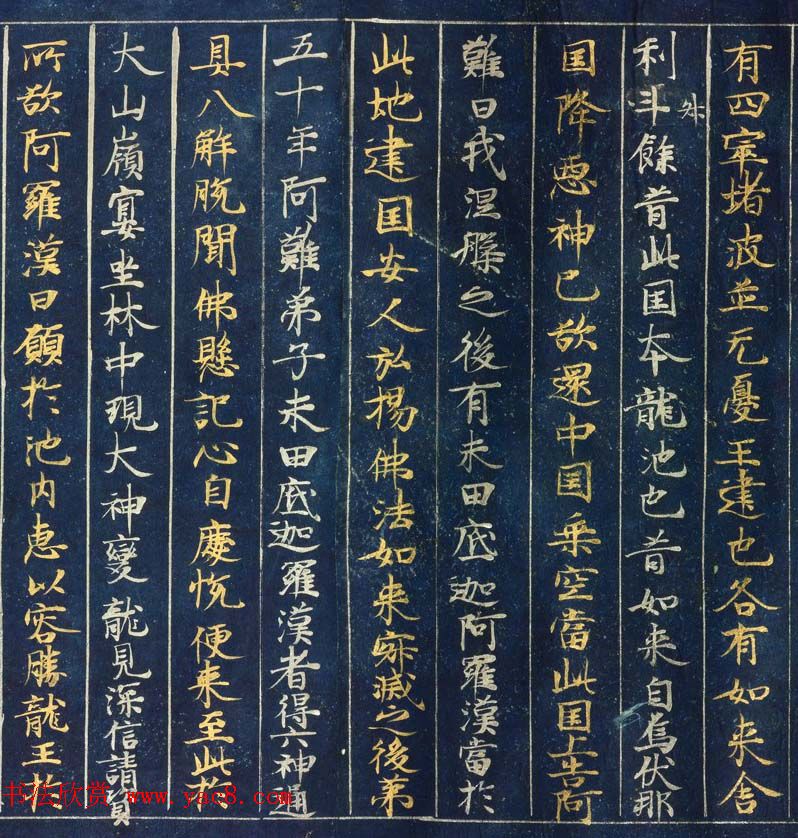 有四窣堵波並无憂王建也各有如来舍
利斗餘昔此囯本龍池也昔如来自烏伏那
囯降恶神已欲還中囯乘空當此囯上告阿
難曰我涅槃之後有末田底迦阿羅漢當於
此地建囯安人弘揚佛法如来寂滅之後第
五十年阿難弟子末田底迦羅漢者得六神通
具八解脱聞佛懸記心自慶悅便来至此於
大山嶺宴坐林中現大神變龍見深信請資
所欲阿羅漢曰願於池内惠以容膝龍王於
书法欣赏 www.yac8.com